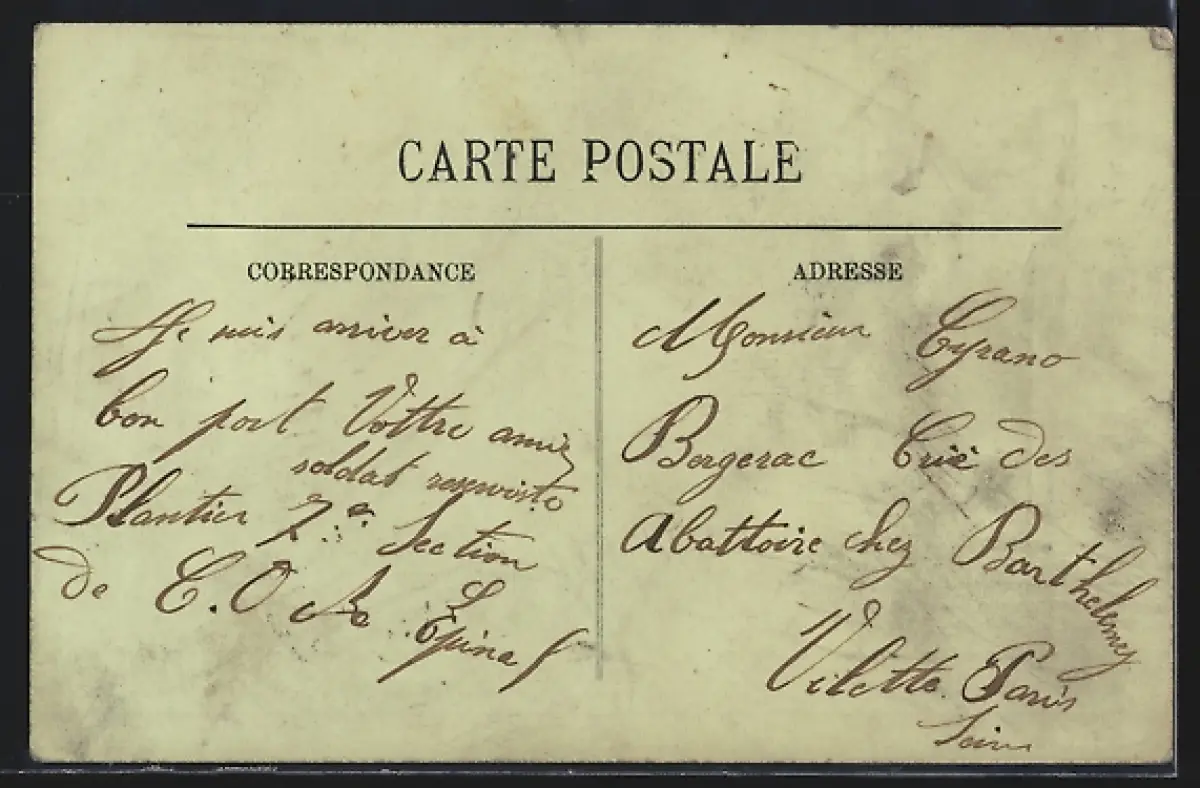 CARTE POSTALE
CORRESPONDANCE
Je suis arriver à
bon port Vottre amie
soldat reserviste
Plantier 7.e Section
de C.O.A. Epinal
ADRESSE
Monsieur Cyrano
Bergerac Crié des
Abattoire chez Barthelemy
Vilette Paris
Seine